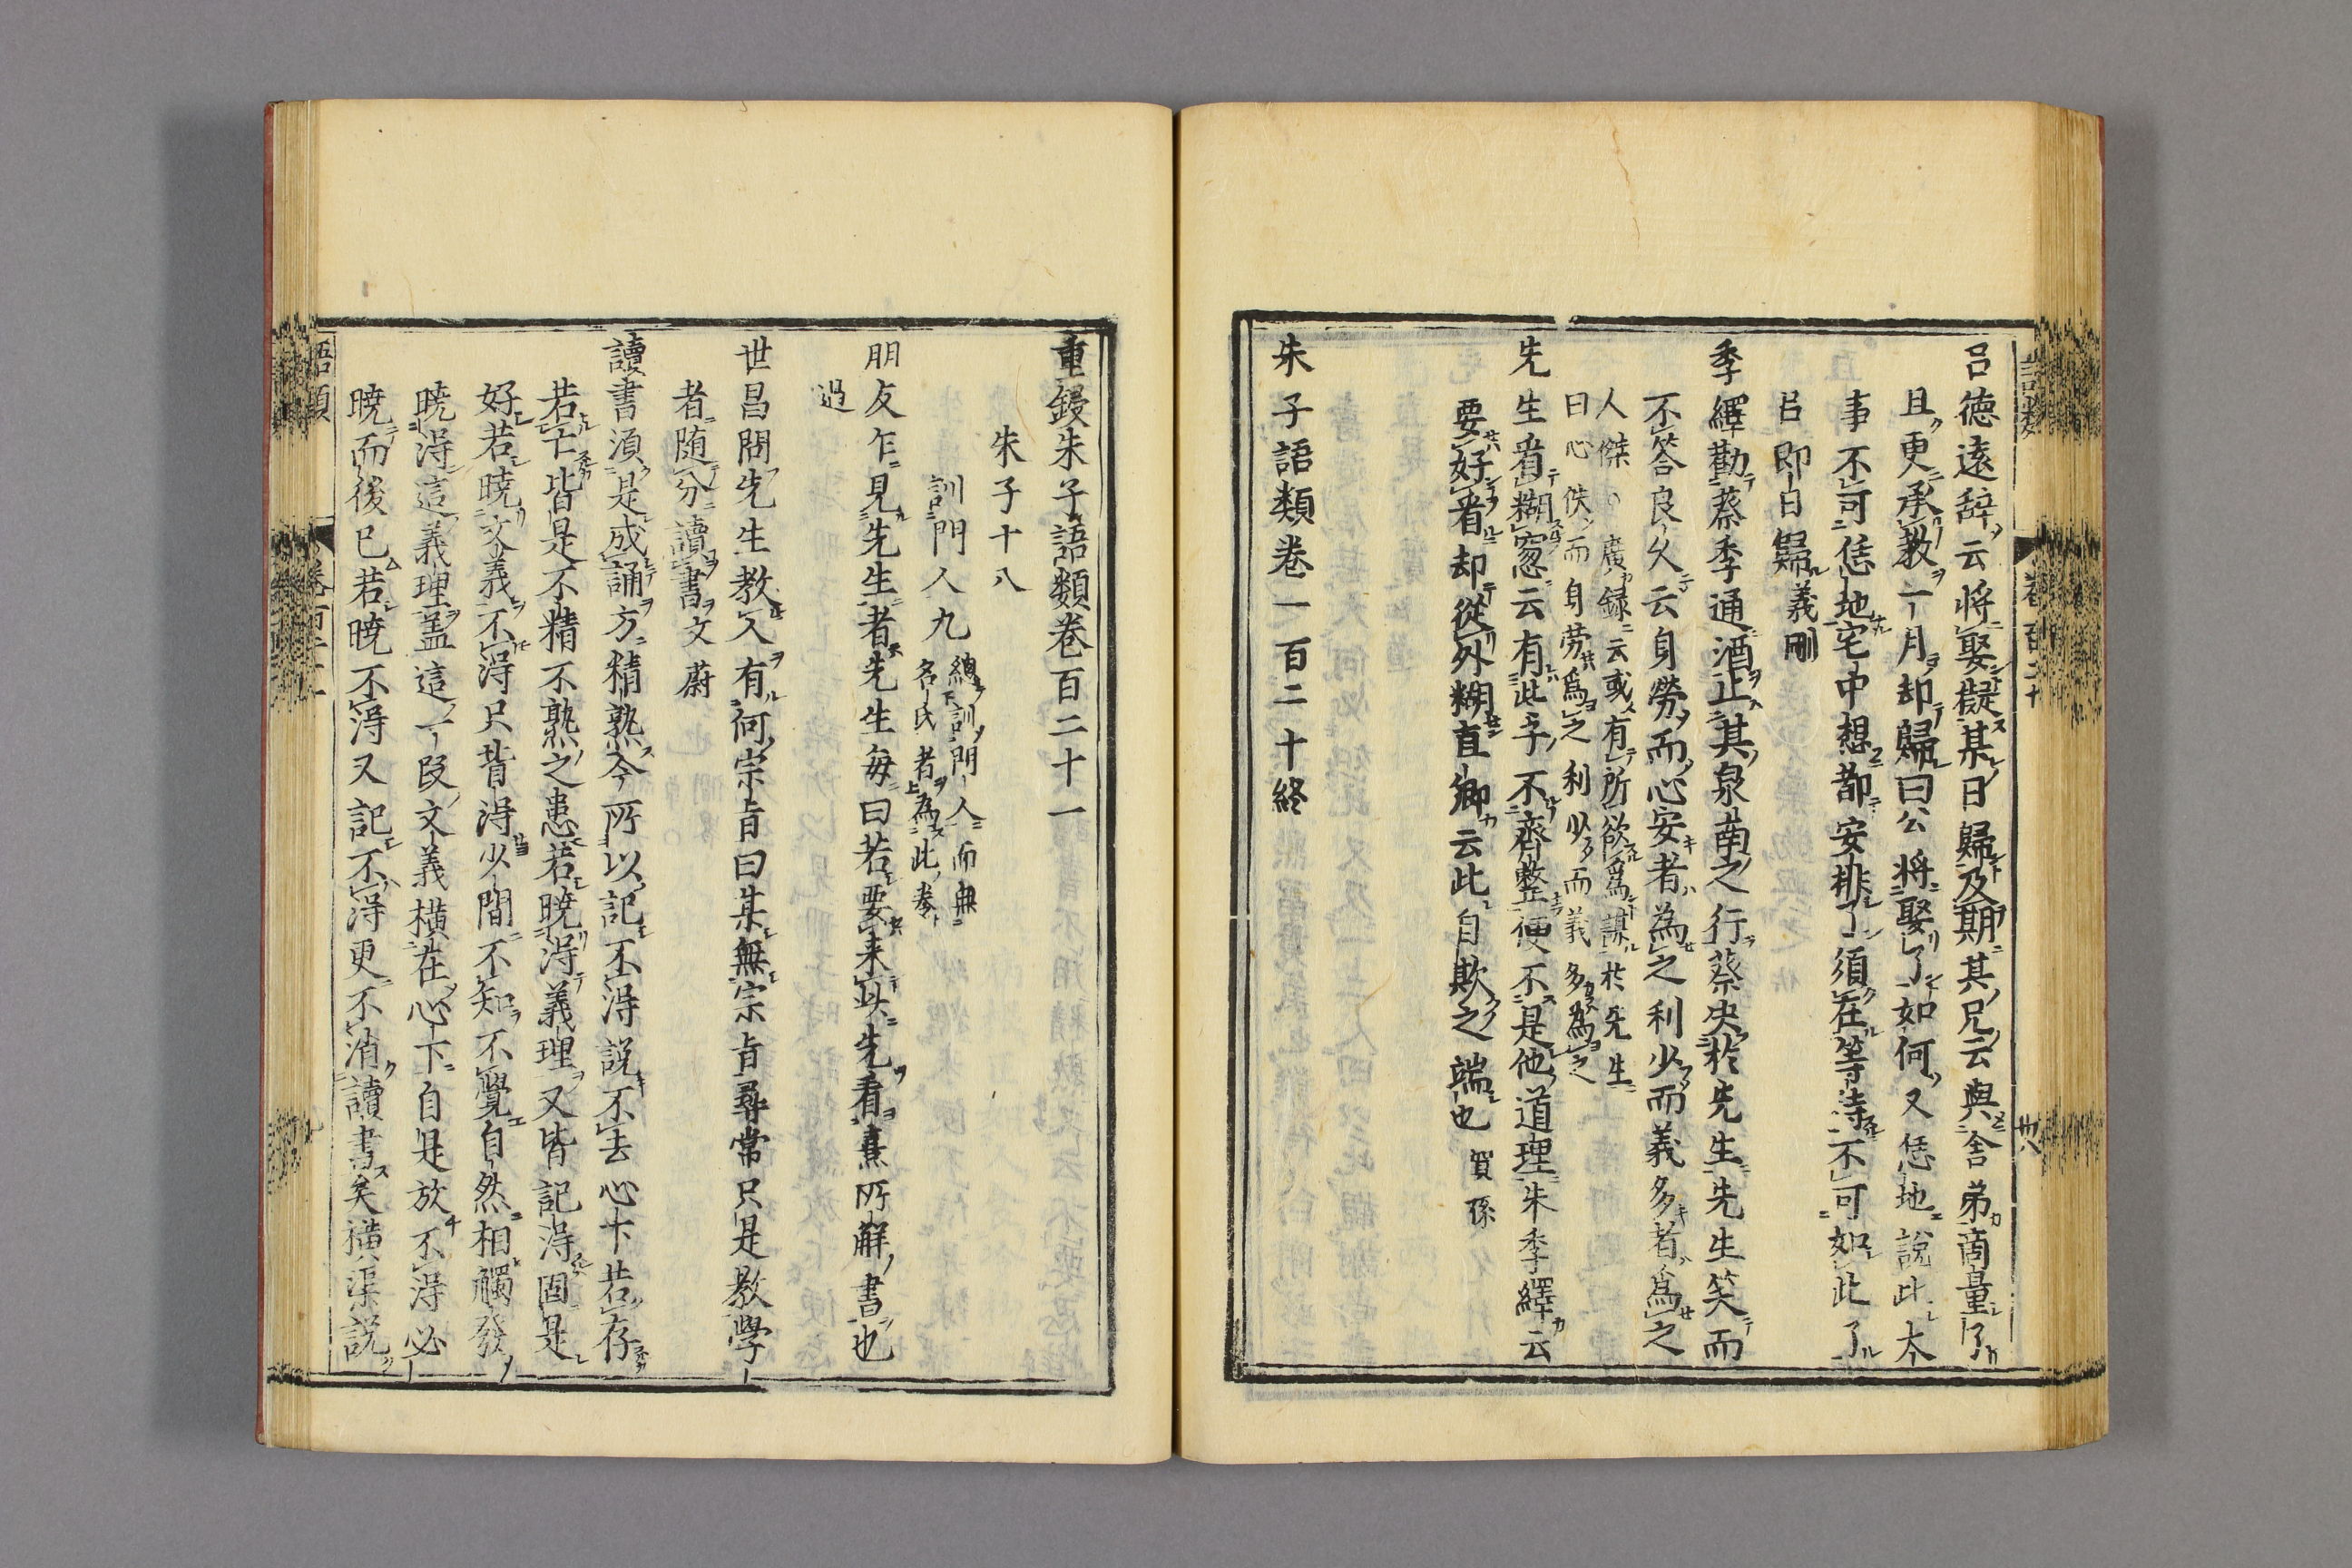 呂德遠辭云將娶擬某日歸及期其兄云與舍弟商量了
且更承教一月却歸曰公將娶了如何又恁地說此大
事不可恁地宅中想都安排了須在等待不可如此了
呂即日歸義剛
季繹勸蔡季通酒止其泉南之行蔡決於先生先生笑而
不答良久云身勞而心安者為之利少而義多者爲之
人傑○廣録云或有所欲爲謀於先生
曰心佚而身劳爲之利少而義多為之
先生看糊窓云有些子不齊整便不是他道理朱季繹云
要好看却從外糊直卿云此自欺之端也賀孫
朱子語類卷一百二十終
重鋟朱子語類卷百二十一
朱子十八
訓門人九
總訓門人而無
名氏者為此卷
朋友乍見先生者先生每曰若要来此先看熹所解書也
過
世昌問先生教人有何宗旨曰某無宗旨尋常只是教學
者随分讀書文蔚
讀書湏是成誦方精熟今所以記不得説不去心下若存
若亡皆是不精不熟之患若曉得義理又皆記得固是
好若曉文義不得只背得少間不知不覺自然相觸發
曉得這義理盖這一段文義横在心下自是放不得必
曉而後已若曉不得又記不得更不消讀書矣横渠説
語類
卷百二十一
卷百二十
卅八